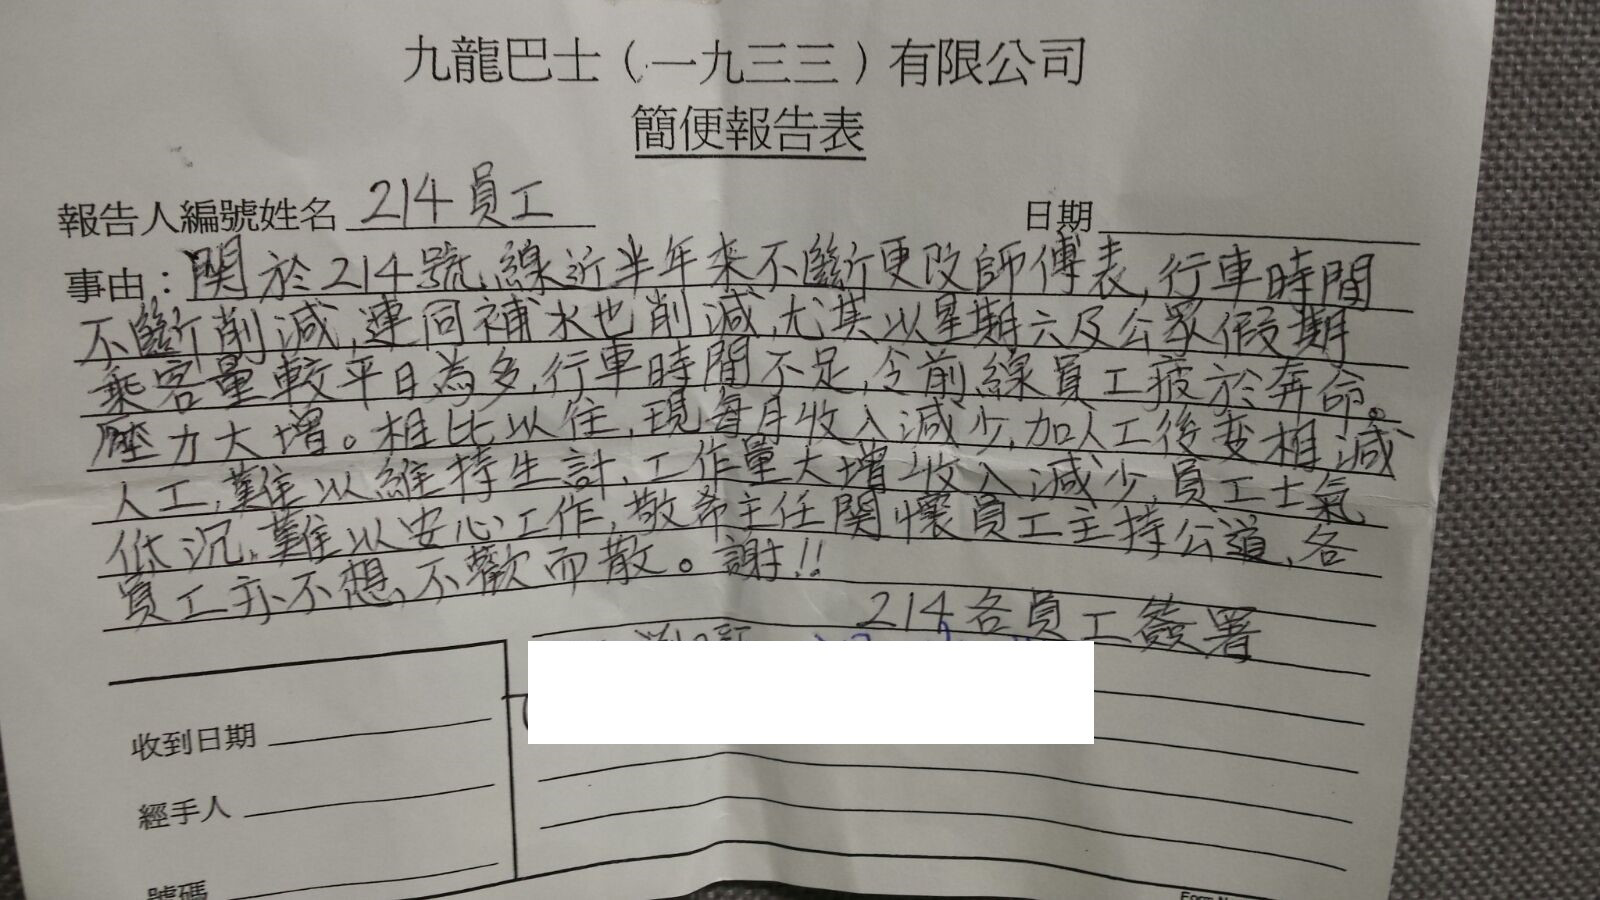 九龍巴士（一九三三）有限公司
簡便報告表
報告人編號姓名 214員工 日期
事由：関於214號線近半年來不斷更改師傅表，行車時間
不斷削減，連同補水也削減，尤其以星期六及公眾假期
乘客量較平日為多，行車時間不足，令前線員工疲於奔命。
壓力大增。相比以往，現每月收入減少，加人工後变相減
人工，難以維持生計，工作量大增收入減少，員工士氣
低沉，難以安心工作，敬希主任関懷員工主持公道，各
員工亦不想，不歡而散。謝!!
214各員工簽署
收到日期
經手人
號碼